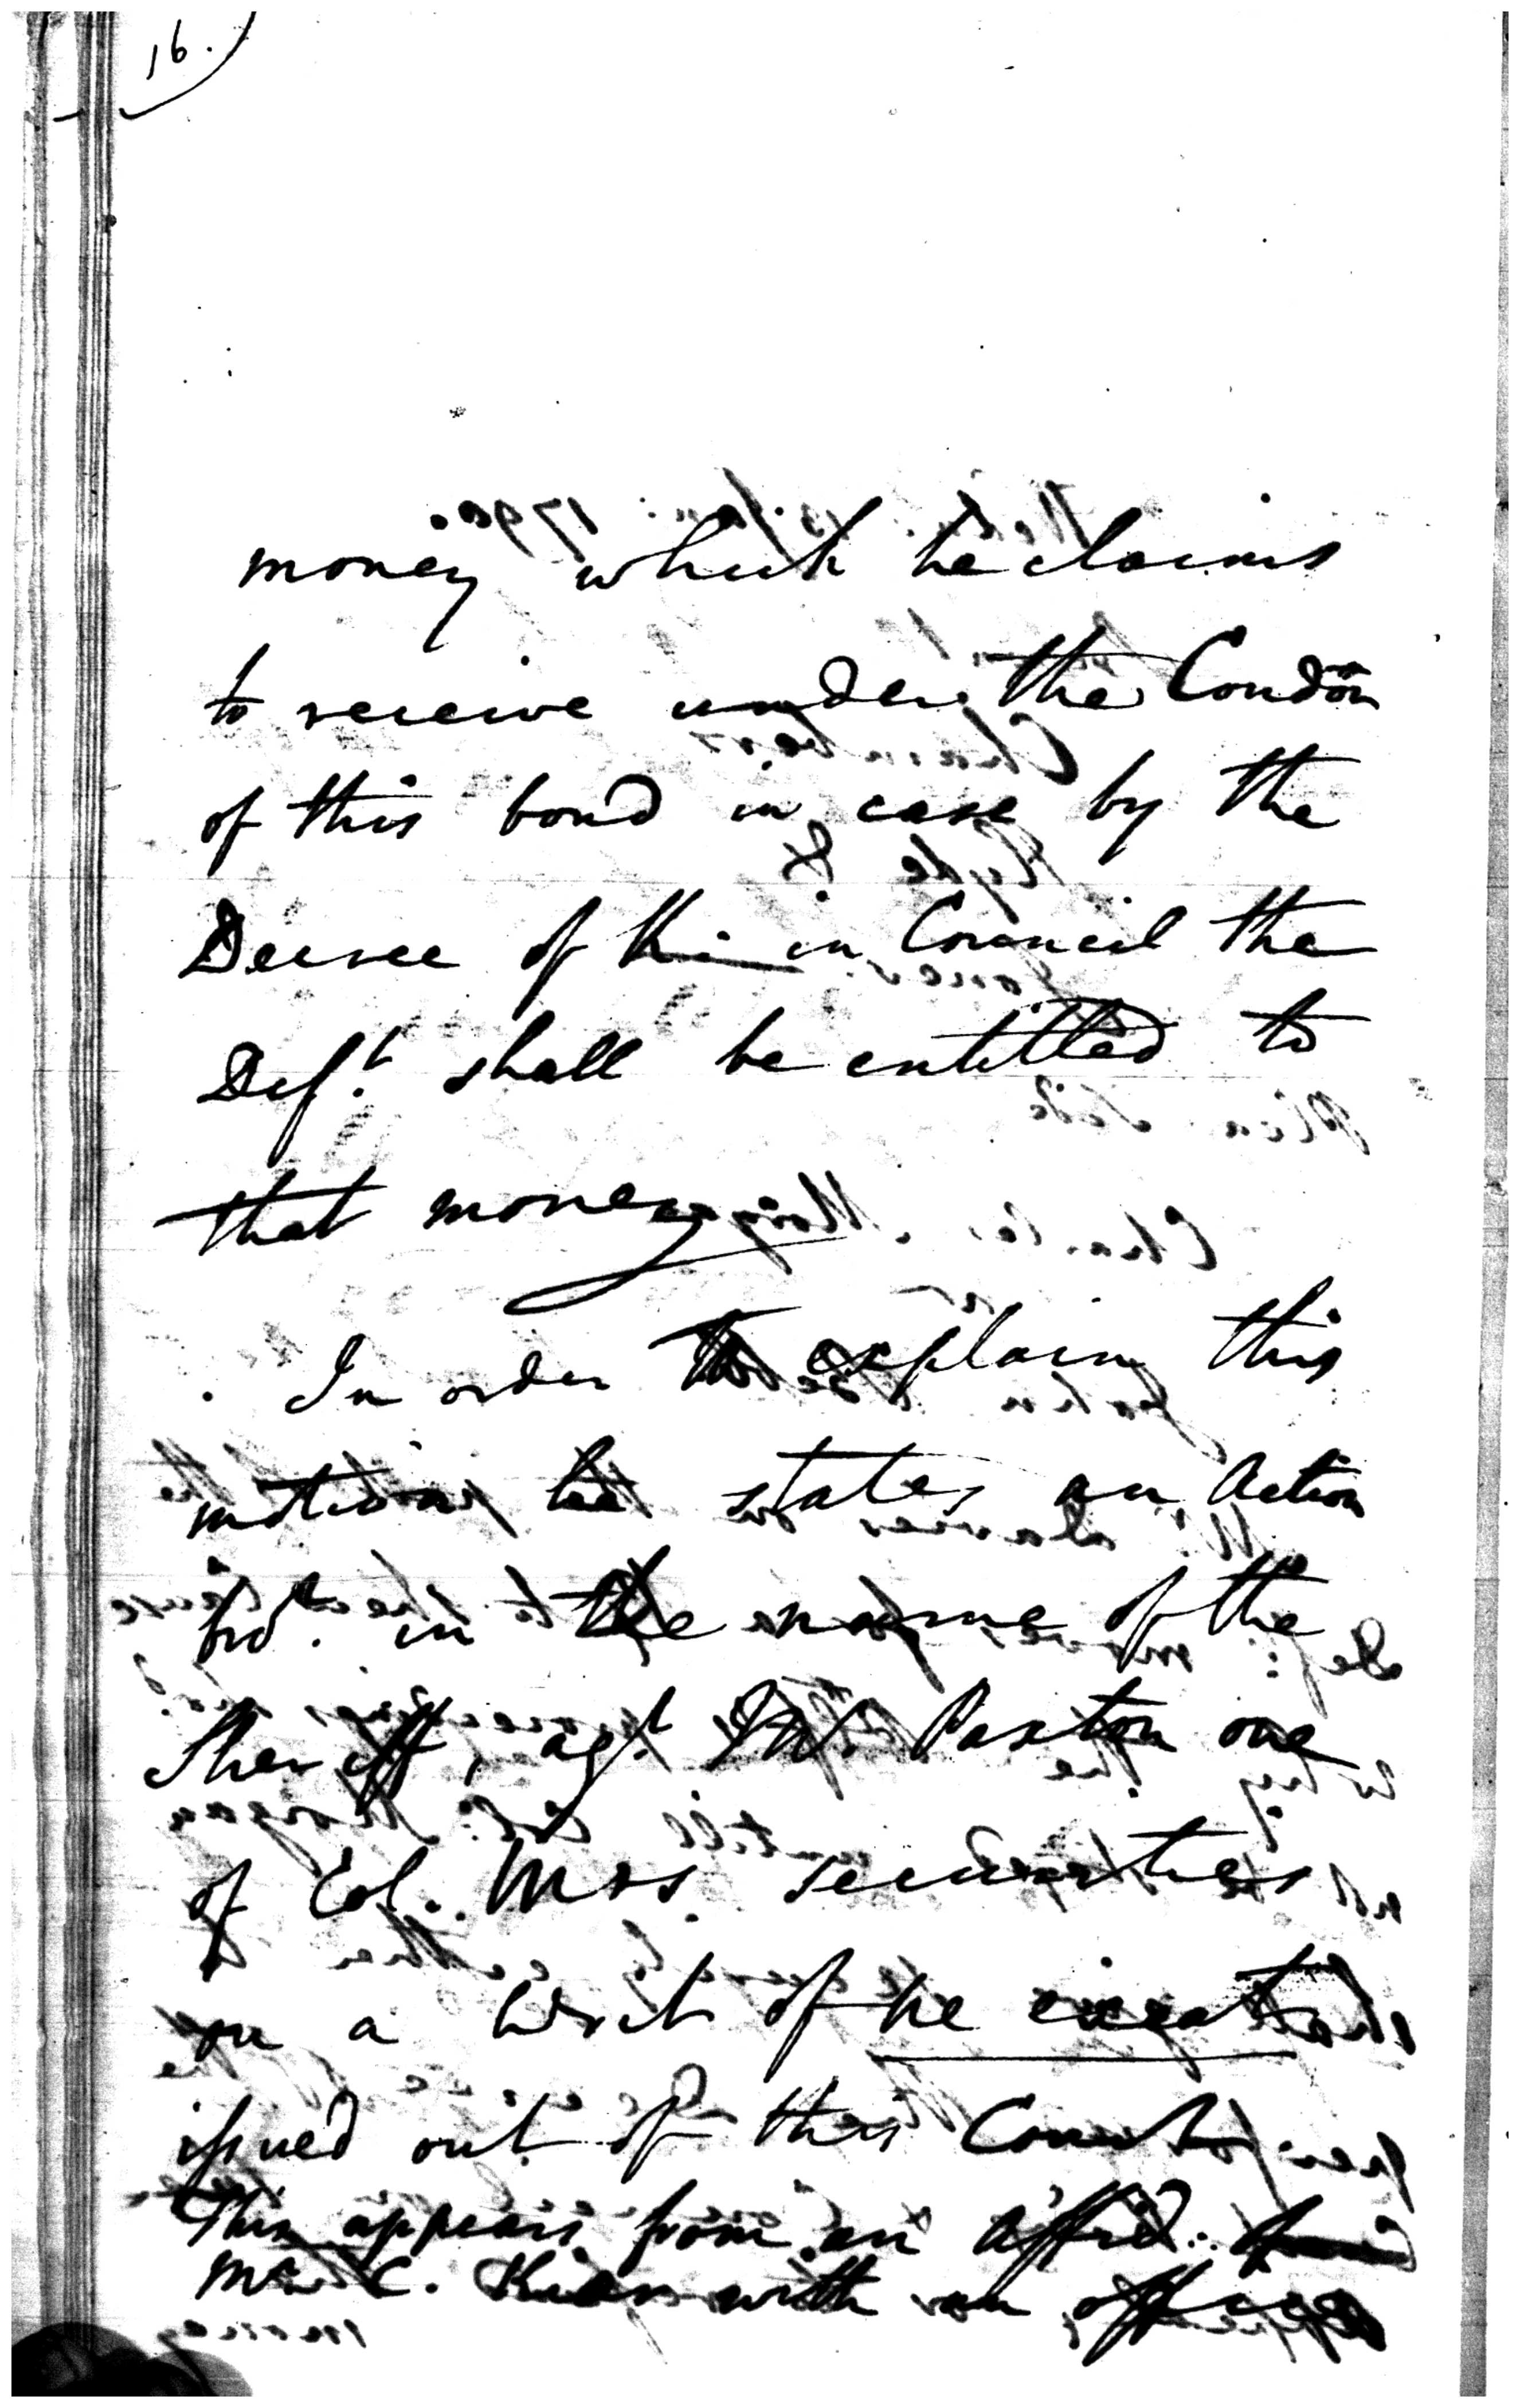 16.
money which he claims
to receive under the Condõn
of this bond in case by the
Decree of Ki— in Council the
Deft. shall be entitled to
that money
In order to explain this
motion he states an Action
brot. in the name of the
Sheriff, agt. Paxton one
of Col. Mos securities
on a Writ of ne exeat
issued out of this Court
This appears from an Affid.
Mr. C. with an office